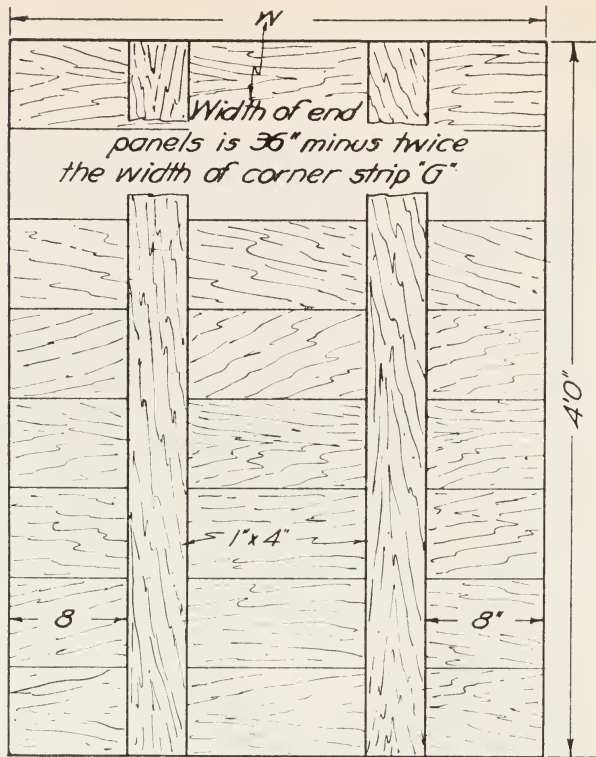 W
Width of end
panels is 36" minus twice
the width of corner strip "G"
4'0"
1" x 4"
8
8"